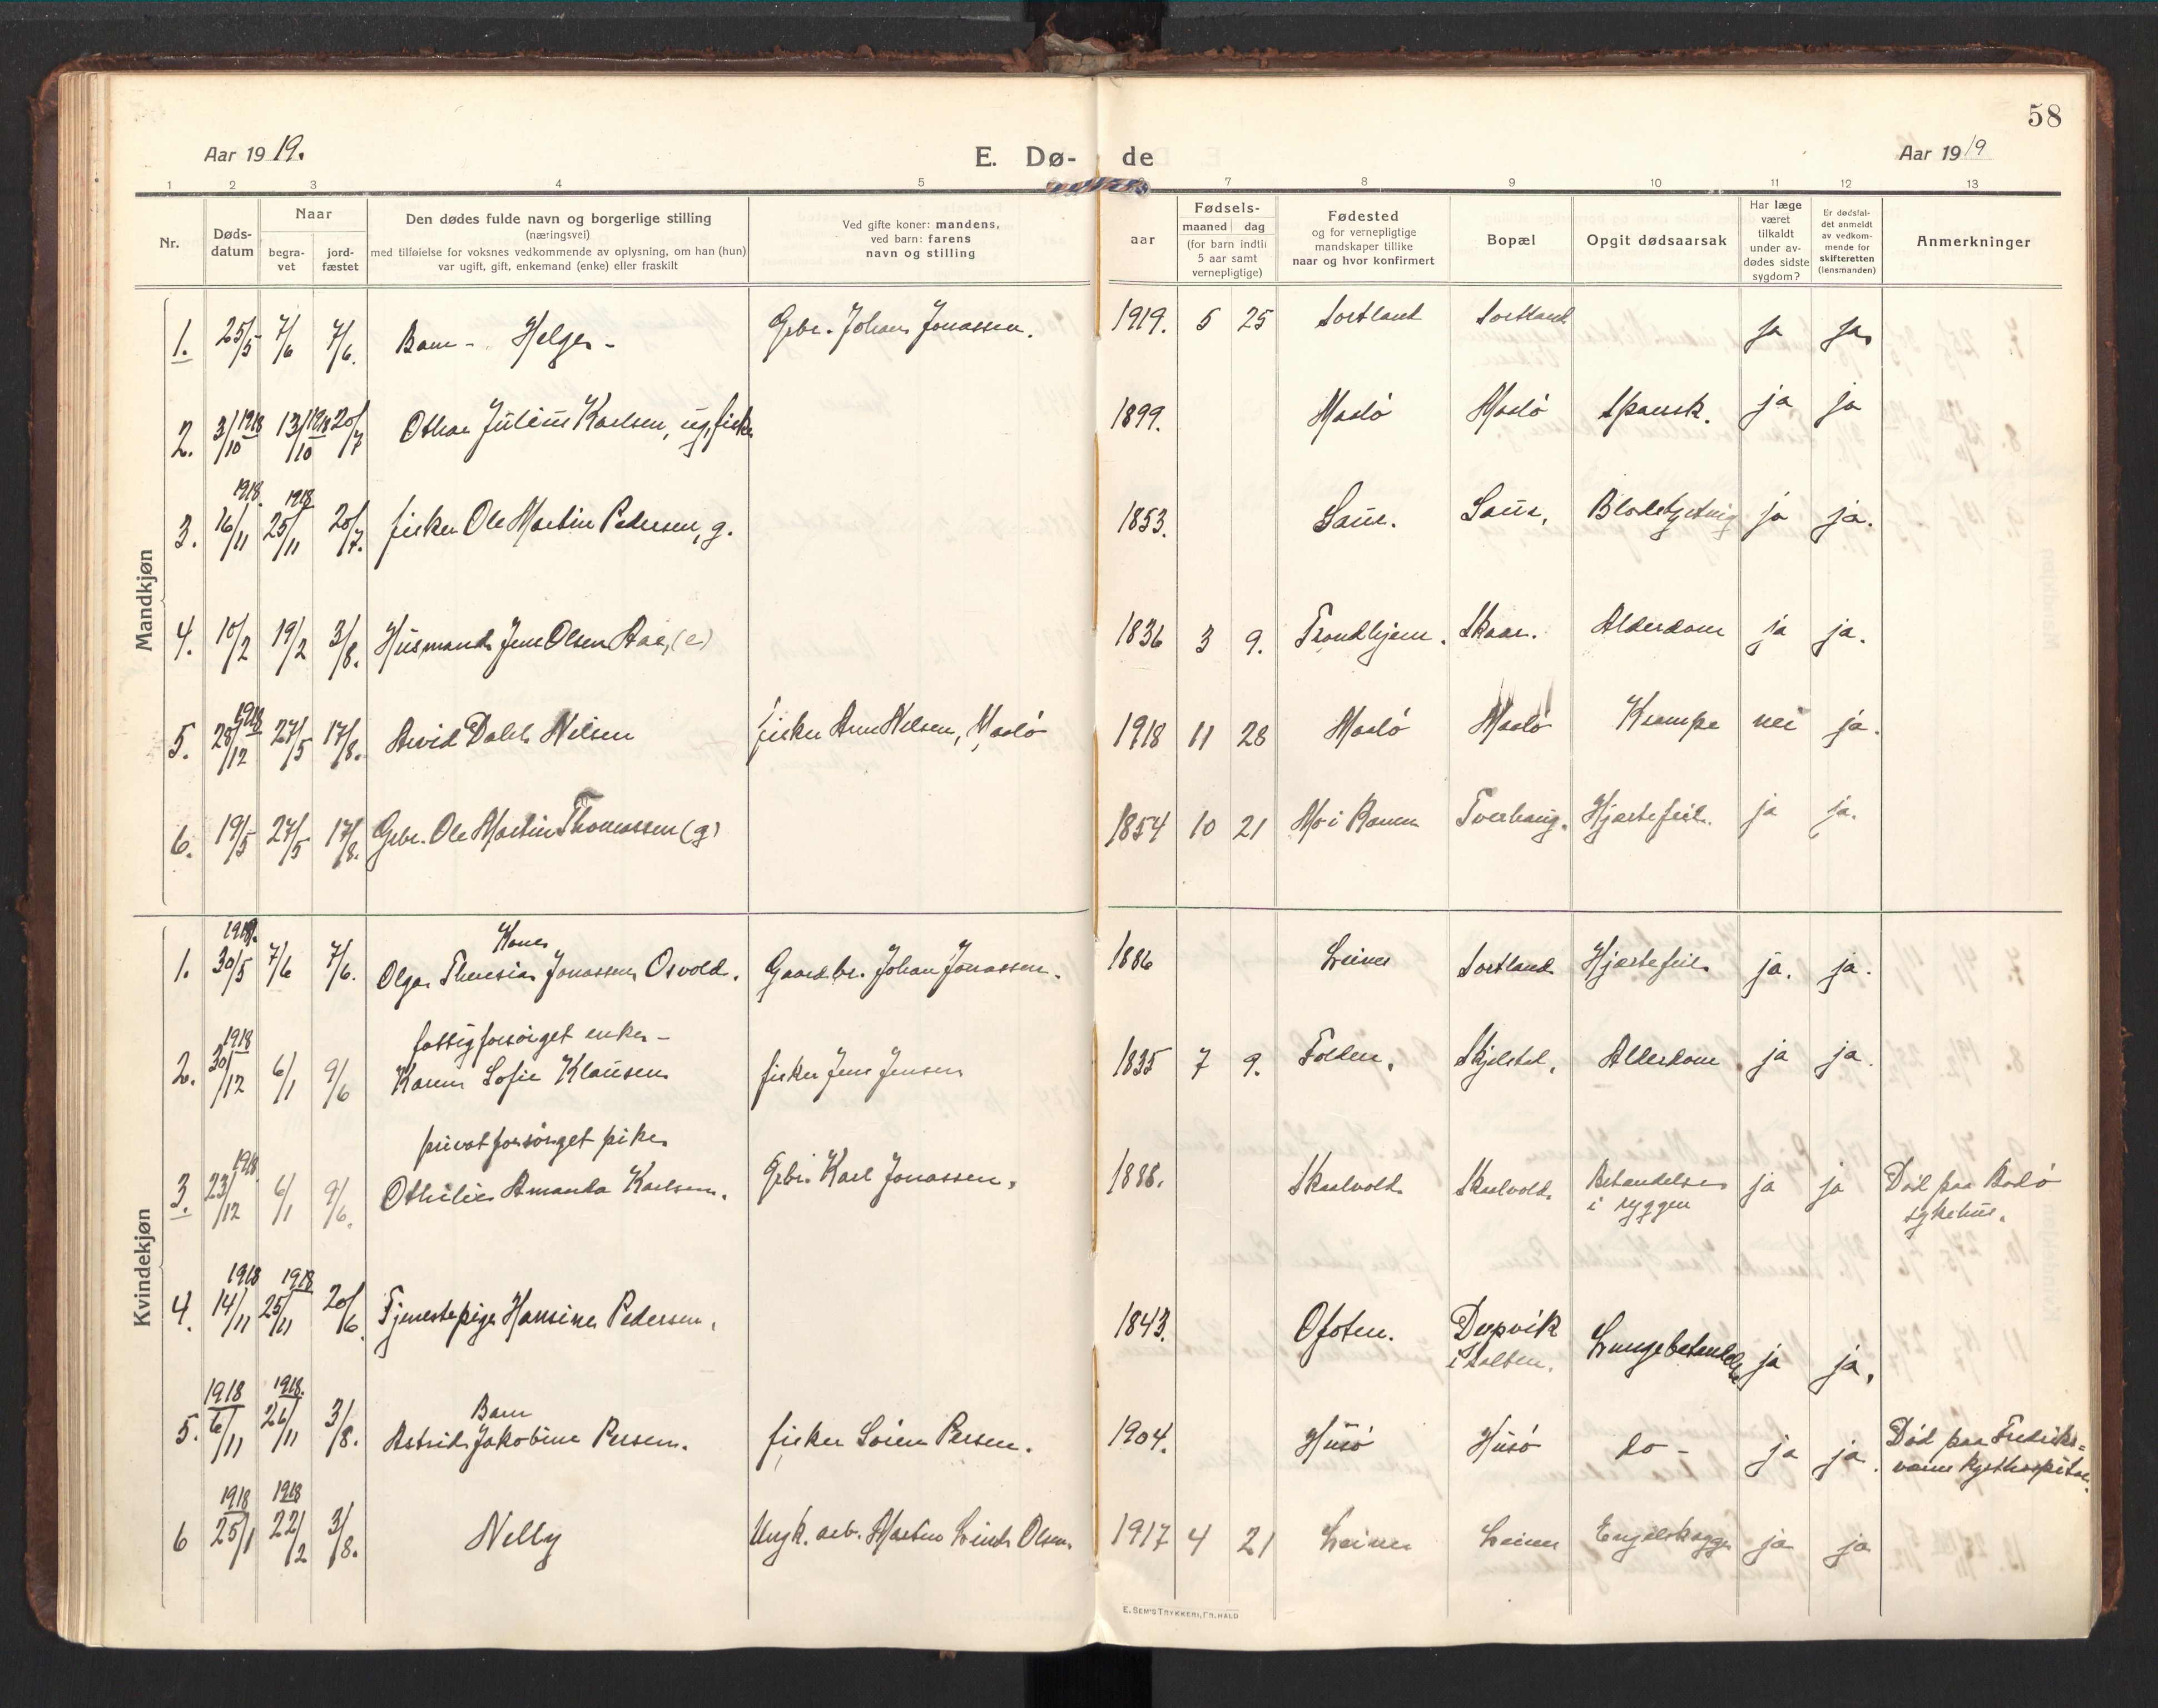 58
Aar 1919.
E. Dø- de
Aar 1919
1 2 3 4 5 7 8 9 10 11 12 13
Nr.
Døds-
datum
Naar
begra-
vet
jord-
fæstet
Den dødes fulde navn og borgerlige stilling
(næringsvei)
med tilføielse for voksnes vedkommende av oplysning, om han (hun)
var ugift, gift, enkemand (enke) eller fraskilt
Ved gifte koner: mandens,
ved barn: farens
navn og stilling
aar
Fødsels-
maaned dag
(for barn indtil
5 aar samt
vernepligtige)
Fødested
og for vernepligtige
mandskaper tillike
naar og hvor konfirmert
Bopæl
Opgit dødsaarsak
Har læge
været
tilkaldt
under av-
dødes sidste
sygdom?
Er dødsfal-
det anmeldt
av vedkom-
mende for
skifteretten
(lensmanden)
Anmerkninger
Mandkjøn
1. 25/5 7/6 7/6. Barn - Helge - Gbr. Johan Jonassen. 1919. 5 25 Sortland Sortland ja ja
2. 3/10 1918 13/10 1918 20/7 Othar Julius Karlsen, ug, fisker 1899. Maslö Maslö Spansk. ja ja
3. 16/11 1918. 25/11 1918 20/7. fisker Ole Martin Pedersen, g. 1853. Saur. Saur, Blodstyrtnig ja ja.
4. 10/2 19/2 3/8. Husmand Jens Olsen Aas, (e) 1836 3 9. Trondhjem. Skaar. Alderdom ja ja.
5. 28/12 1918 27/5 17/8. Arvid Dahl Nilsen fisker Arne Nilsen, Maslö 1918 11 28 Maslö Maslö Krampe nei ja.
6. 19/5 27/5 17/8. Gbr. Ole Martin Thomassen (g) 1854 10 21 Mo i Ranen Tverhaug. Hjertefeil. ja ja.
Kvindekjøn
Kone
1. 30/5 7/6 7/6. Olga Theresia Jonassen Osvold. Gaardbr. Johan Jonassen. 1886 Leines Sortland Hjertefeil ja. ja.
fattigforsörget enke -
2. 30/12 1918 6/1 9/6 Karen Sofie Klausen fisker Jens Jensen 1835 7 9. Folden, Skjelstad, Alderdom ja ja.
privatforsörget pike
3. 23/12 1918. 6/1 9/6. Othilie Amanda Karlsen. Gbr. Karl Jonassen. 1888. Skaalvold Skaalvold Betændelse
i ryggen ja ja Död paa Bodö
sykehus.
4. 14/11 1918 25/11 1918 20/6. Tjenestepige Hansine Pedersen. 1843. Ofoten. Depvik
i Salten. Lungebetændelse ja ja.
Barn
5. 6/11 1918 26/11 1918. 3/8. Astrid Jakobine Persen. fisker Sören Persen. 1904. Husö Husö do - ja ja. Död paa Fredriks=
værns Kysthospital.
6 25/1 1918 22/2 1918 3/8. Nelly Ungk. arb. Martin Lind Olsen. 1917 4 21 Leines Leines Engelskesyge ja ja
E. SEM'S TRYKKERI, FR. HALD